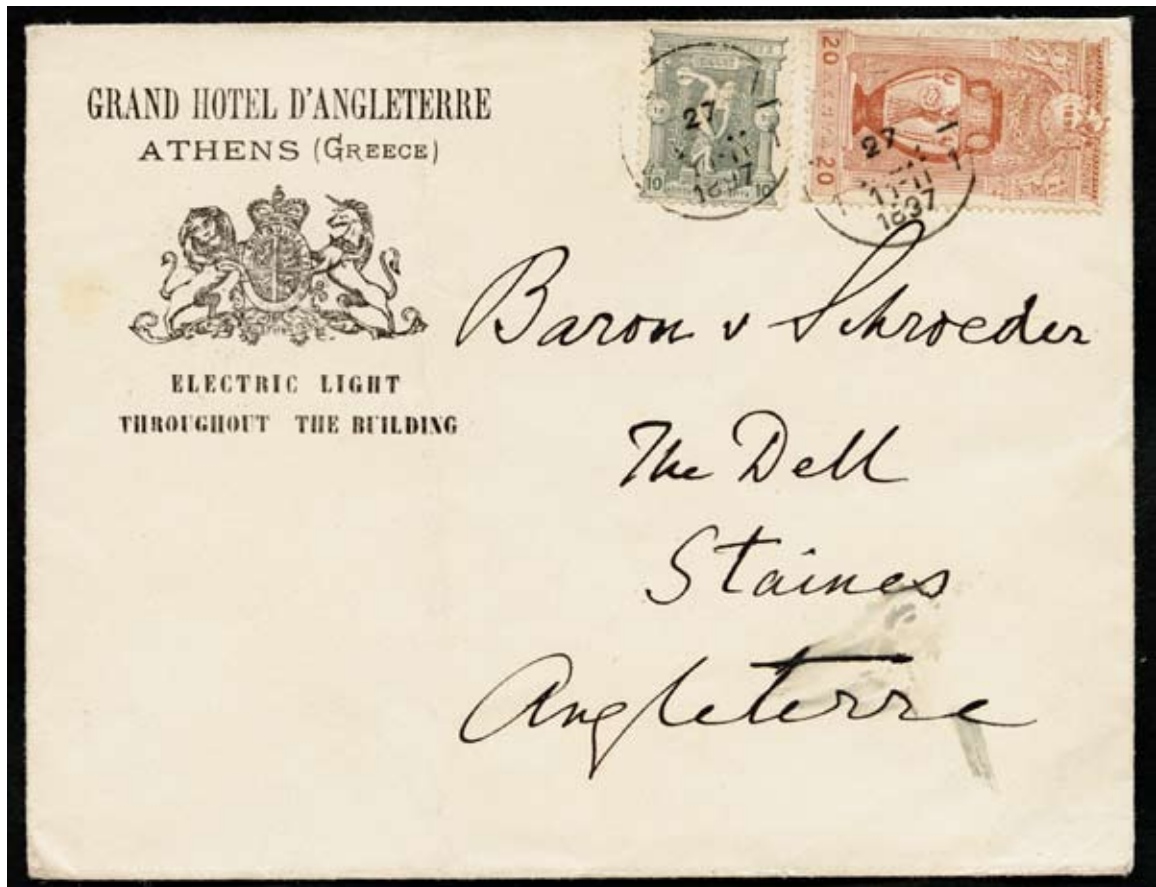 GRAND HOTEL D'ANGLETERRE
ATHENS (GREECE)
ELECTRIC LIGHT
THROUGHOUT THE BUILDING
10 10
27
1897
20 20
27
1897
Baron v Schroeder
The Dell
Staines
Angleterre